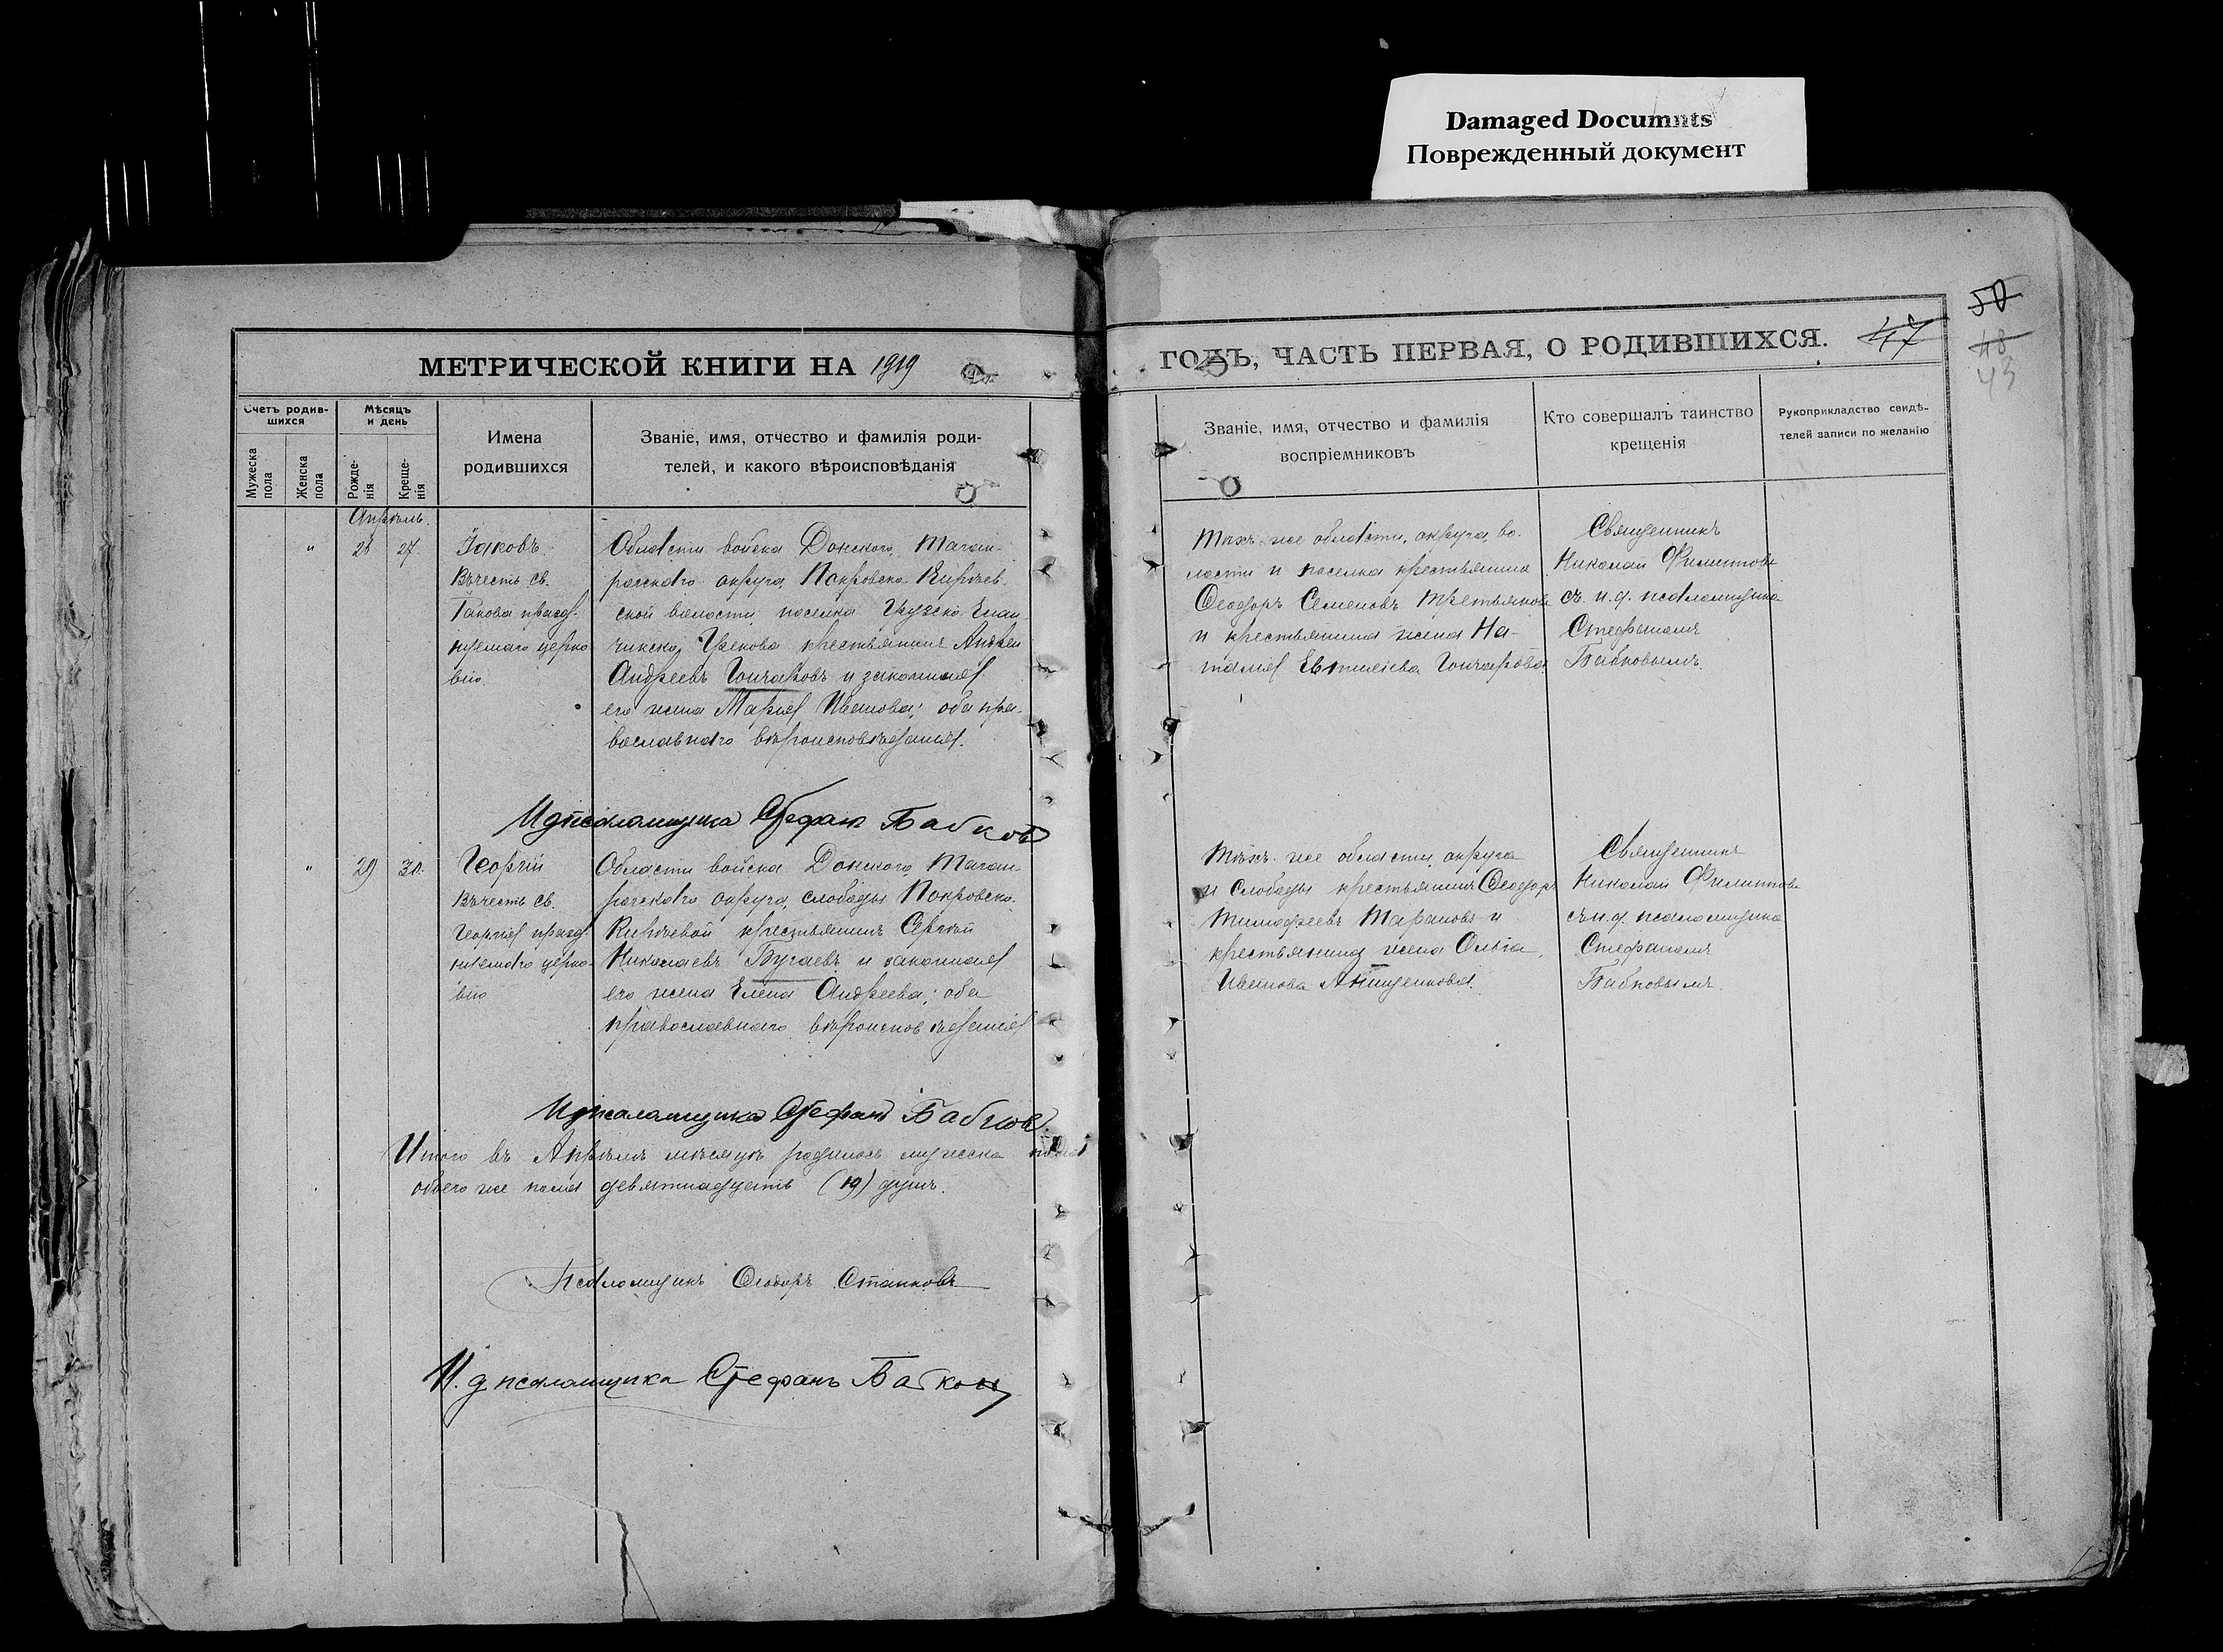 Damaged Documnts
Поврежденный документ
50
48
43
МЕТРИЧЕСКОЙ КНИГИ НА 1919
ГОДЪ, ЧАСТЬ ПЕРВАЯ, О РОДИВШИХСЯ. 47
Счетъ родив-
шихся
Мужеска пола
Женска пола
Мѣсяцъ и день
Рожде-
нія
Креще-
нія
Имена
родившихся
Званіе, имя, отчество и фамилія роди-
телей, и какого вѣроисповѣданія
Званіе, имя, отчество и фамилія
воспріемниковъ
Кто совершалъ таинство
крещенія
Рукоприкладство свидѣ-
телей записи по желанію
Апрѣль.
" 27.
Іаковъ.
Въ честь св.
Іакова празд-
нуемаго церко
вію.
Области войска Донского, Таган-
рогскаго округа, Покровско-Кирѣев-
ской волости, поселка Грузско-Елан-
чикско, Грекова крестьянинъ Андрей
Андреевъ Гончаровъ и законная
его жена Марія Иванова; оба пра-
вославнаго вѣроисповѣданія.
Тѣхъ-же области, округа, во-
лости и поселка крестьянинъ
Ѳеодоръ Семеновъ Третьяковъ
и крестьянина жена На-
талія Гончарова.
Священникъ
Николай Филипповъ
съ и. д. псаломщика
Стефаномъ
Бабковымъ.
И д псаломщика Стефан Бабков
" 29 30.
Георгій
Въ честь св.
Георгія празд
нуемаго церко-
вію
Области войска Донского, Таган-
рогскаго округа, слободы Покровско-
Кирѣевой крестьянинъ Сергѣй
Николаевъ Бугаевъ и законная
его жена Елена Андреева; оба
православнаго вѣроисповѣданія
Тѣхъ-же области, округа
и слободы крестьянинъ Ѳеодоръ
Тимофеевъ Тарановъ и
крестьянина жена Ольга
Иванова Анищенкова.
Священникъ
Николай Филипповъ
съ и. д. псаломщика
Стефаномъ
Бабковымъ.
И д псаломщика Стефан Бабков.
Итого въ Апрѣлѣ мѣсяцѣ родилось мужеска пола
обоего же пола девятнадцать (19) душъ.
Псаломщикъ Ѳеодоръ Станковъ
И. д псаломщика Стефанъ Бабков